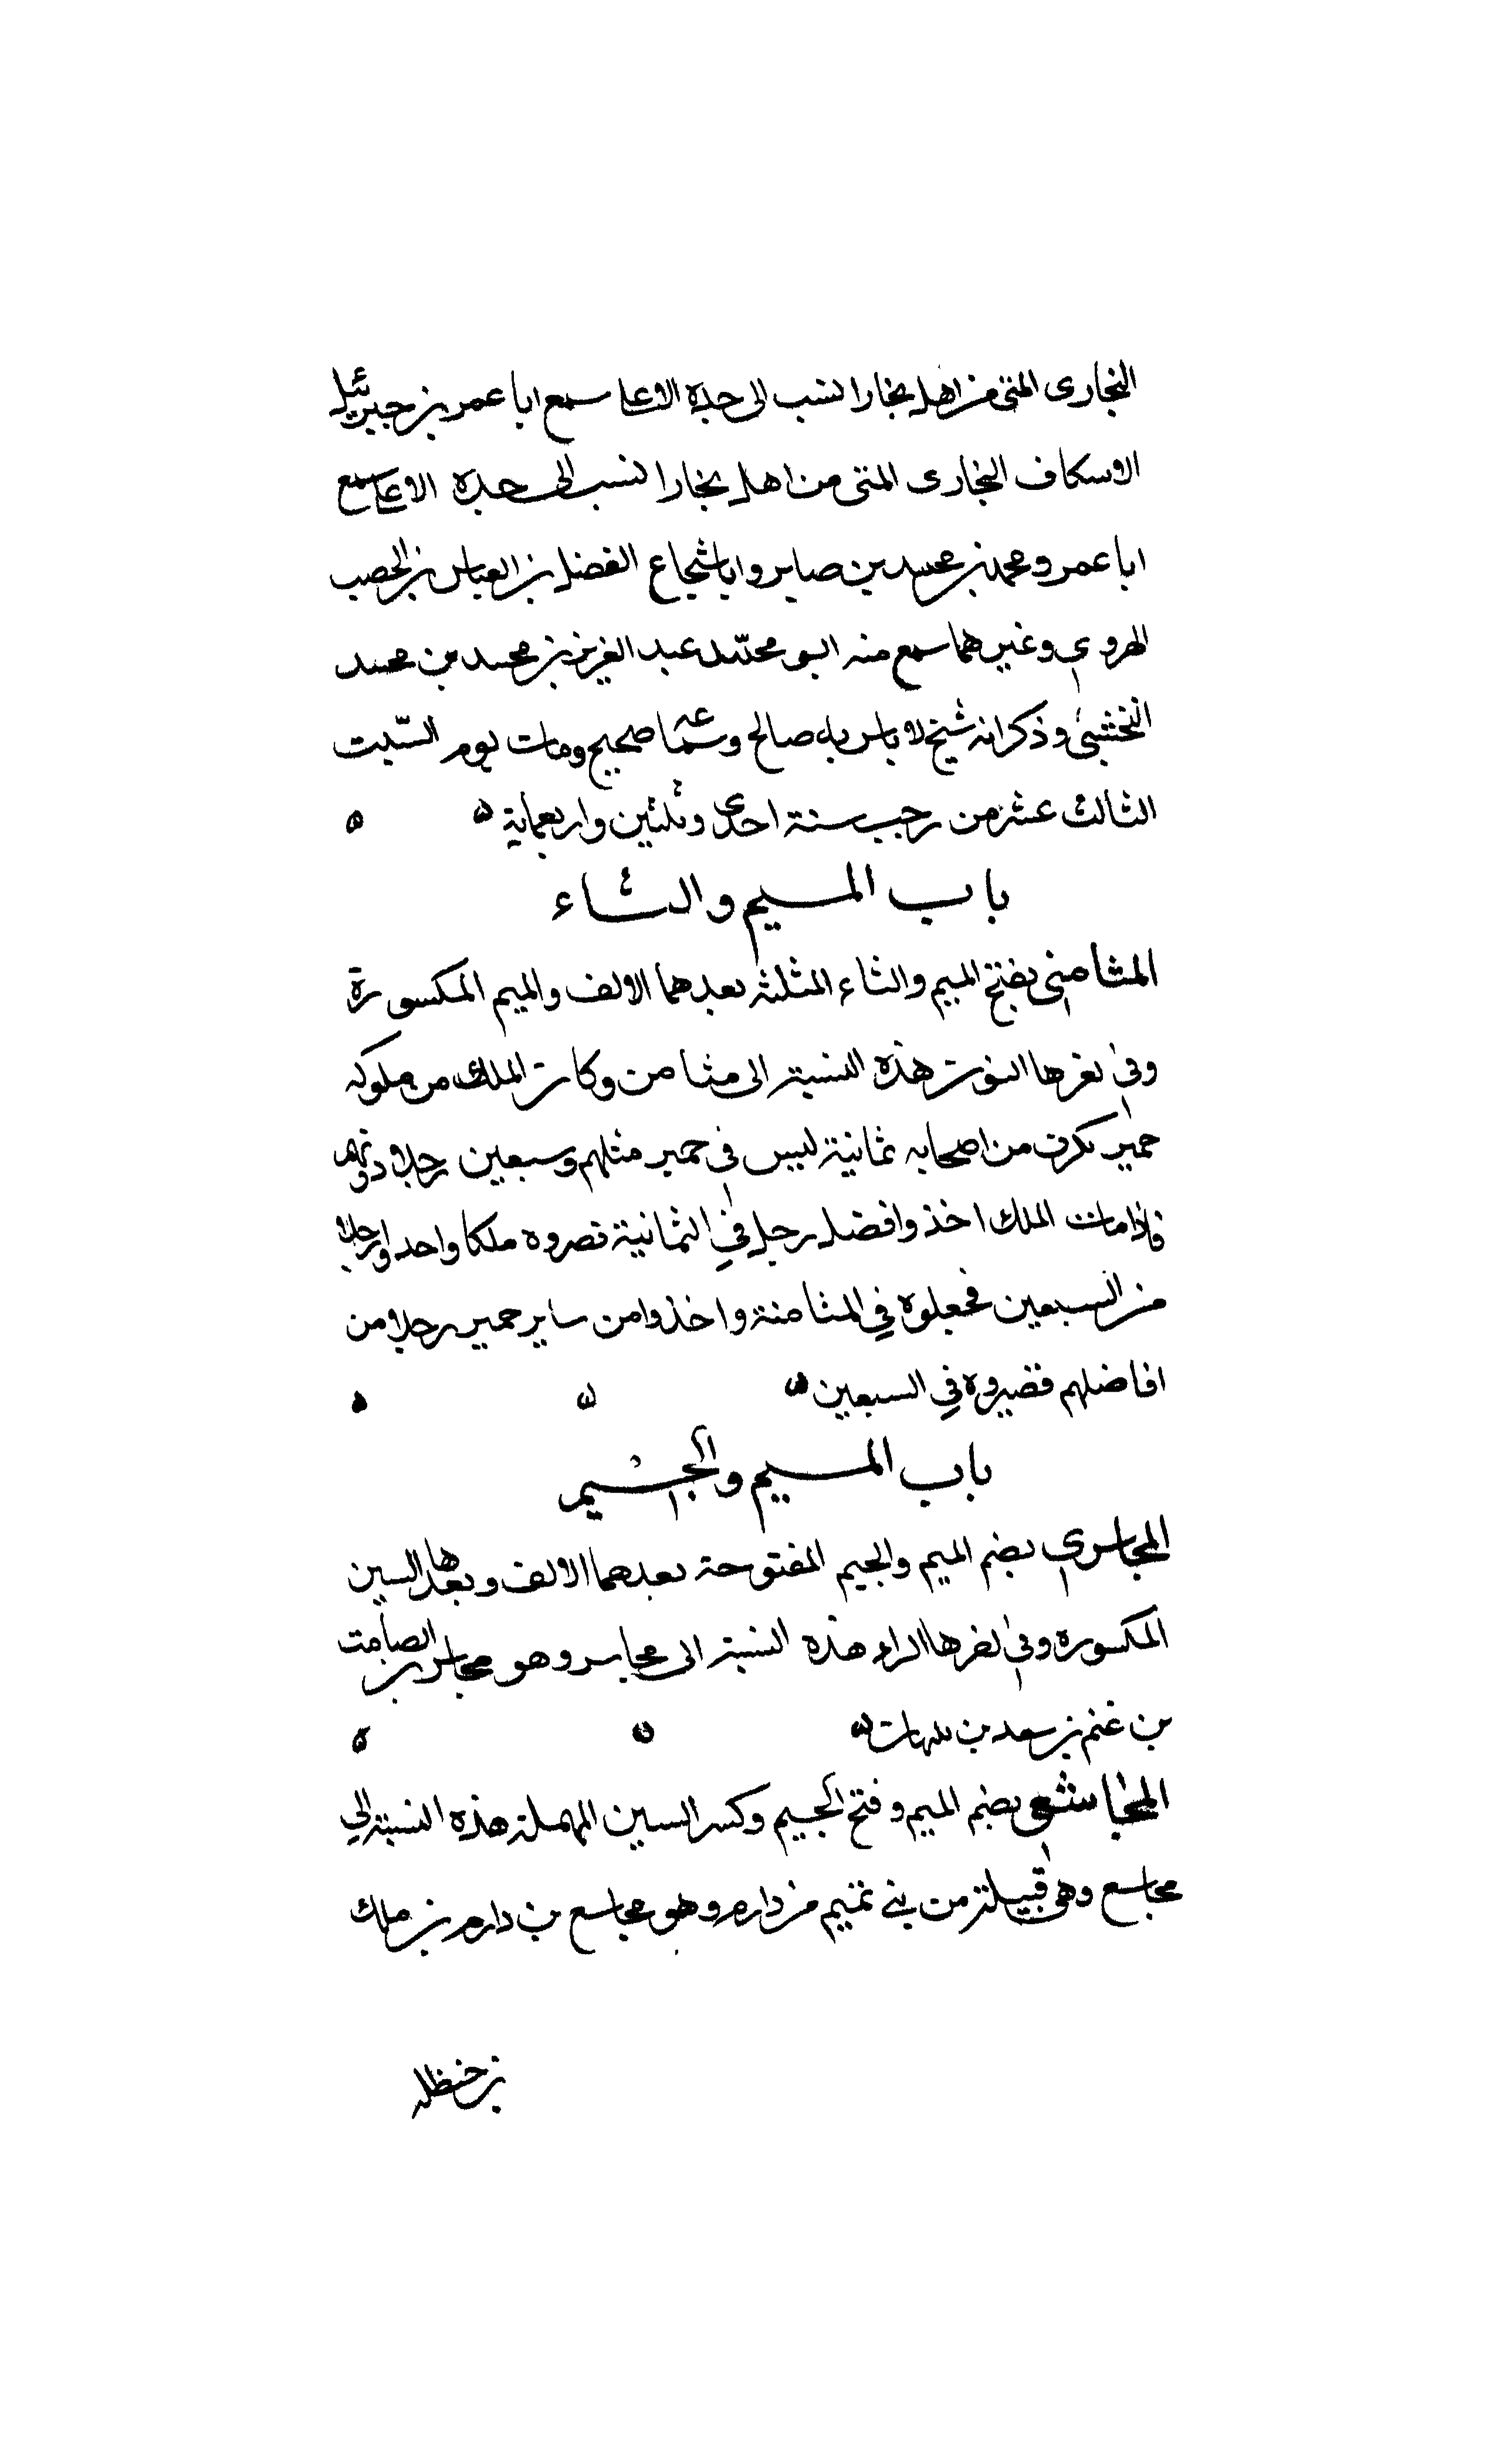 البخارى المتى من اهل بخارا نسب الى جده الاعلى سمع ابا عمر بن جبرئيل
الاسكاف البخارى المتى من اهل بخارا نسب الى جده الاعلى سمع
ابا عمرو محمد بن محمد بن صابر وابا شجاع الفضل بن العباس بن الخصيب
الهروي وغيرهما سمع منه ابو محمد عبد العزيز بن محمد بن محمد
النخشبي وذكر انه شيخ لا باس به صالح وسماعه صحيح ومات يوم السّبت
الثالث عشر من رجب سنة احدى وثلثين واربعماية ه ه
باب الميم والثاء
المثامني بفتح الميم والثاء المثلثة بعدهما الالف والميم المكسورة
وفي اخرها النون هذه النسبة الى مثامن وكان الملك من ملوك
حمير من اصحابه ثمانية ليس في حمير مثلهم وسبعين رجلا دونهم
فاذا مات الملك اخذوا افضل رجل في الثمانية فصروه ملكا واحدوا رجلا
من السبعين فجعلوه في المثامنة واخذوا من ساير حمير رجلا من
افاضلهم فصيروه في السبعين ه ه ه
باب الميم والجيم
المجاسري بضم الميم والجيم المفتوحة بعدهما الالف وبعدها السين
المكسورة وفي اخرها الراء هذه النسبة الى مجاسر وهو مجاسر بن الصامت
بن غنم بن سعد بن ه ه ه
المجاشعي بضم الميم وفتح الجيم وكسر السين المهملة هذه النسبة الى
مجاسع وهي قبيلة من بني تميم من دارم وهو مجاسع بن دارم بن ملك
بن حنظله